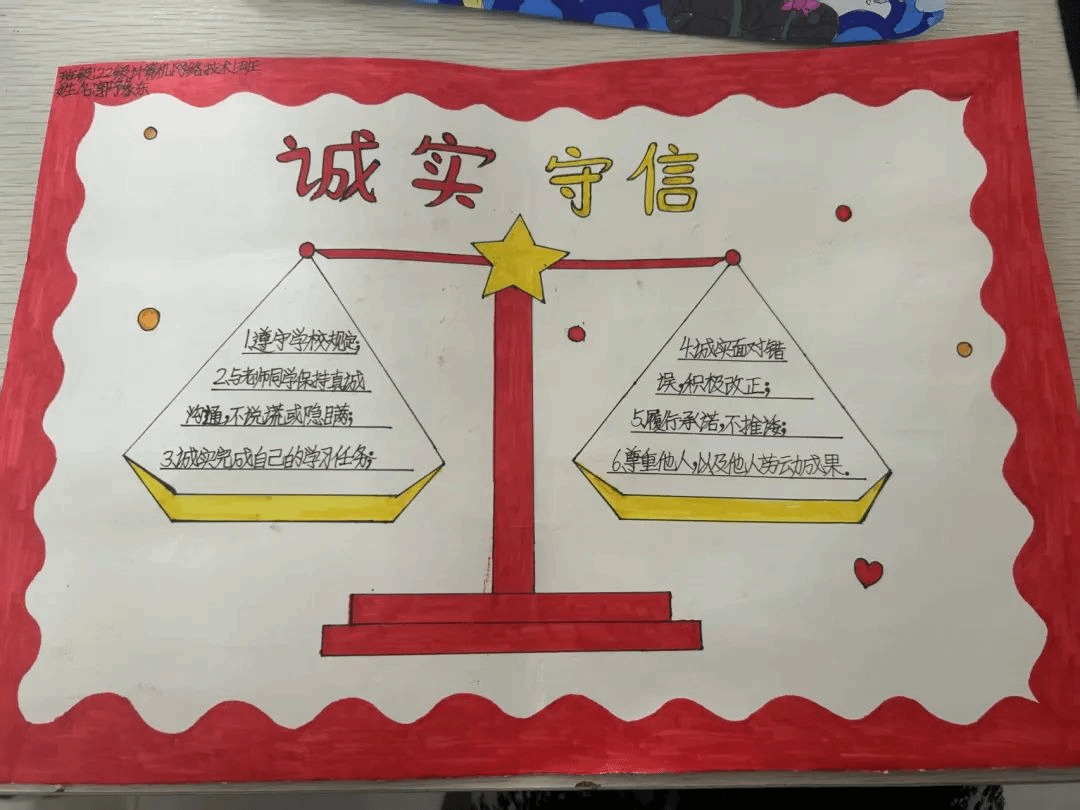 班级:22级计算机网络技术1班
姓名:郭
诚实 守信
1.遵守学校规定;
2.与老师同学保持真诚
沟通,不说谎或隐瞒;
3.诚实完成自己的学习任务;
4.诚实面对错
误,积极改正;
5.履行承诺,不推诿;
6.尊重他人,以及他人劳动成果.